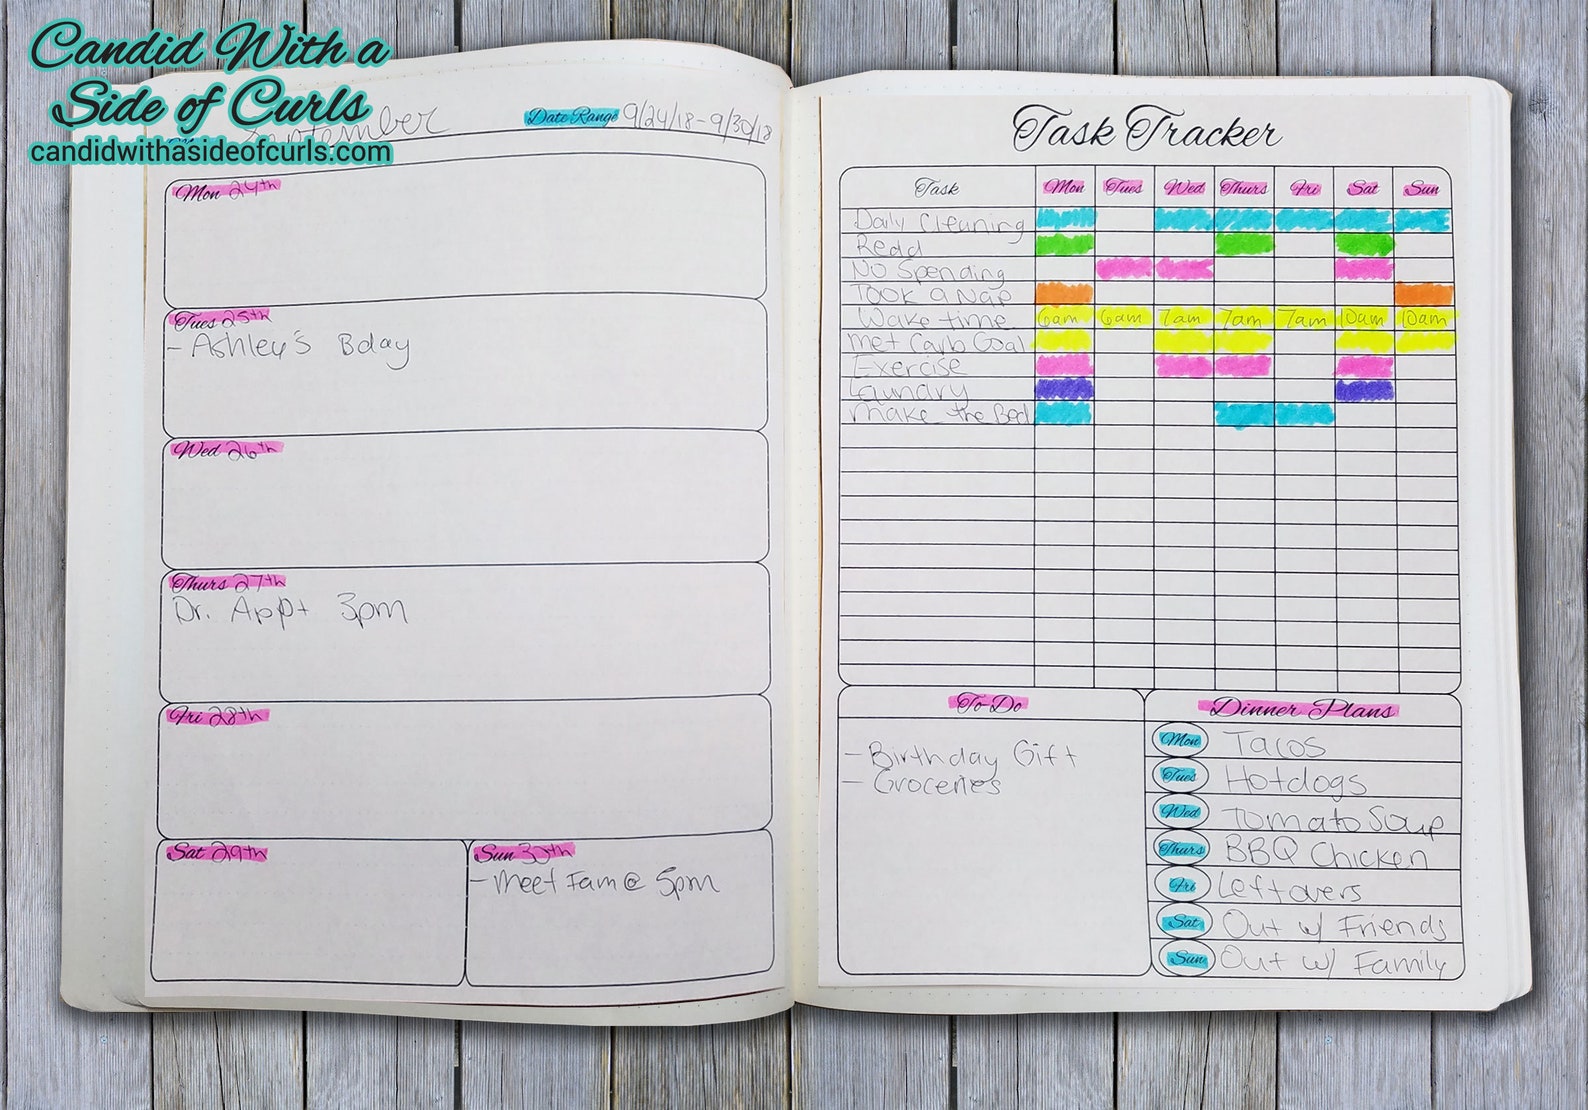 Candid With a
Side of Curls
candidwithasideofcurls.com
September
Date Range 9/24/18-9/30/18
Mon 24th
Tues 25th
- Ashley's Bday
Wed 26th
Thurs 27th
Dr. Appt 3pm
Fri 28th
Sat 29th
Sun 30th
- Meet Fam @ 5pm
Task Tracker
Task Mon Tues Wed Thurs Fri Sat Sun
Daily Cleaning
Read
No Spending
Took a Nap
Wake time 6am 6am 7am 7am 7am 10am 10am
Met Carb Goal
Exercise
Laundry
Make the Bed
To-Do
- Birthday Gift
- Groceries
Dinner Plans
Mon Tacos
Tues Hotdogs
Wed Tomato Soup
Thurs BBQ Chicken
Fri Leftovers
Sat Out w/ Friends
Sun Out w/ Family